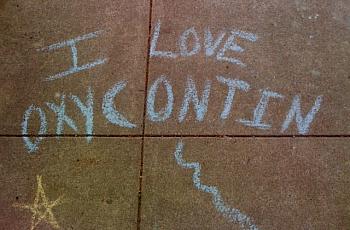 I LOVE
OXYCONTIN